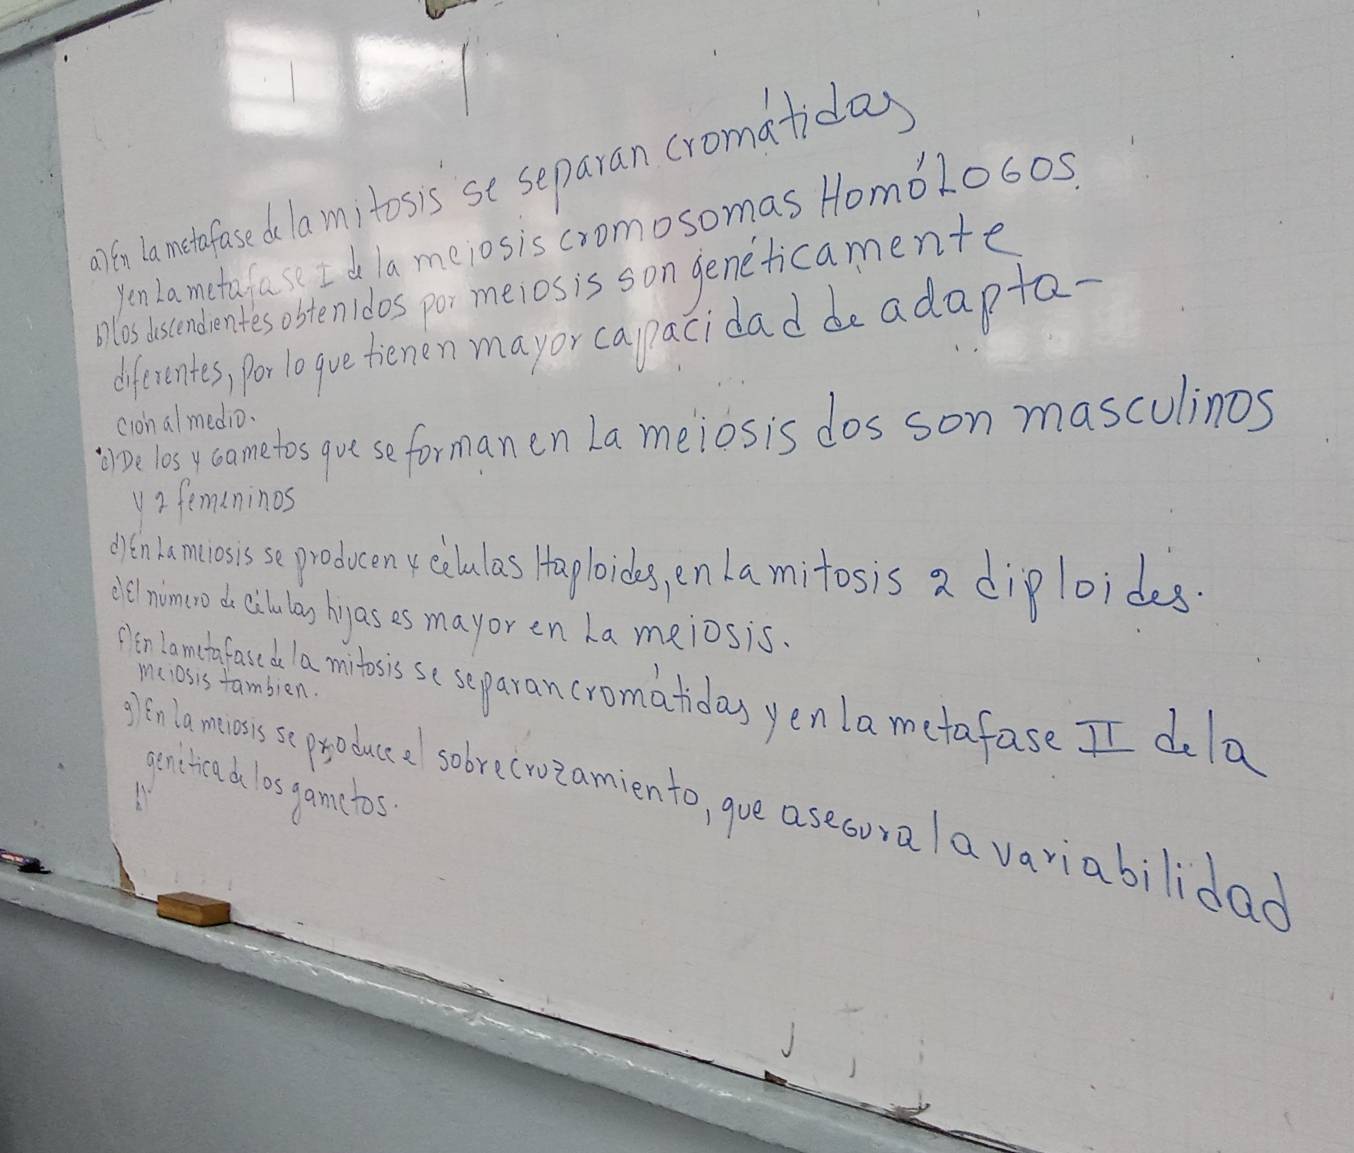 a) En la metafase de la mitosis se separan cromátidas
y en la metafase I de la meiosis cromosomas HomóLoGos.
b) los descendientes obtenidos por meiosis son genéticamente
diferentes, por lo que tienen mayor capacidad de adapta-
ción al medio.
c) De los 4 Gametos que se forman en la meiosis dos son masculinos
y 2 femeninos
d) En la meiosis se producen 4 células Haploides, en la mitosis 2 diploides.
e) El número de células hijas es mayor en la meiosis.
f) En la metafase de la mitosis se separan cromátidas y en la metafase II de la
meiosis tambien.
g) En la meiosis se produce el sobrecruzamiento, que aseGura la variabilidad
genética de los gametos.